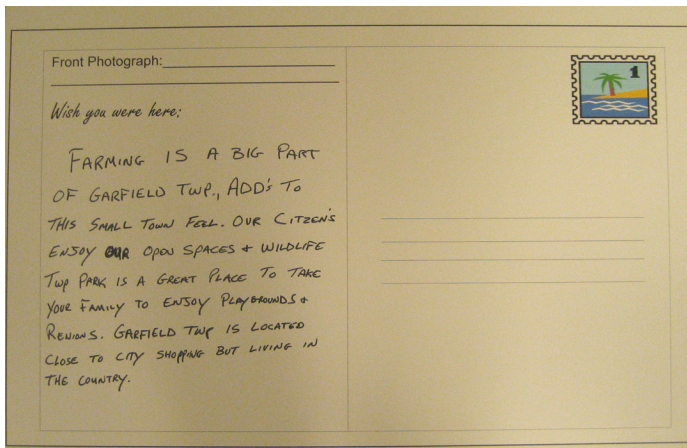 Front Photograph:
1
Wish you were here:
FARMING IS A BIG PART
OF GARFIELD TWP., ADD'S TO
THIS SMALL TOWN FEEL. OUR CITZEN'S
ENJOY OUR OPEN SPACES + WILDLIFE
TWP PARK IS A GREAT PLACE TO TAKE
YOUR FAMILY TO ENJOY PLAYGROUNDS +
RENIONS. GARFIELD TWP IS LOCATED
CLOSE TO CITY SHOPPING BUT LIVING IN
THE COUNTRY.